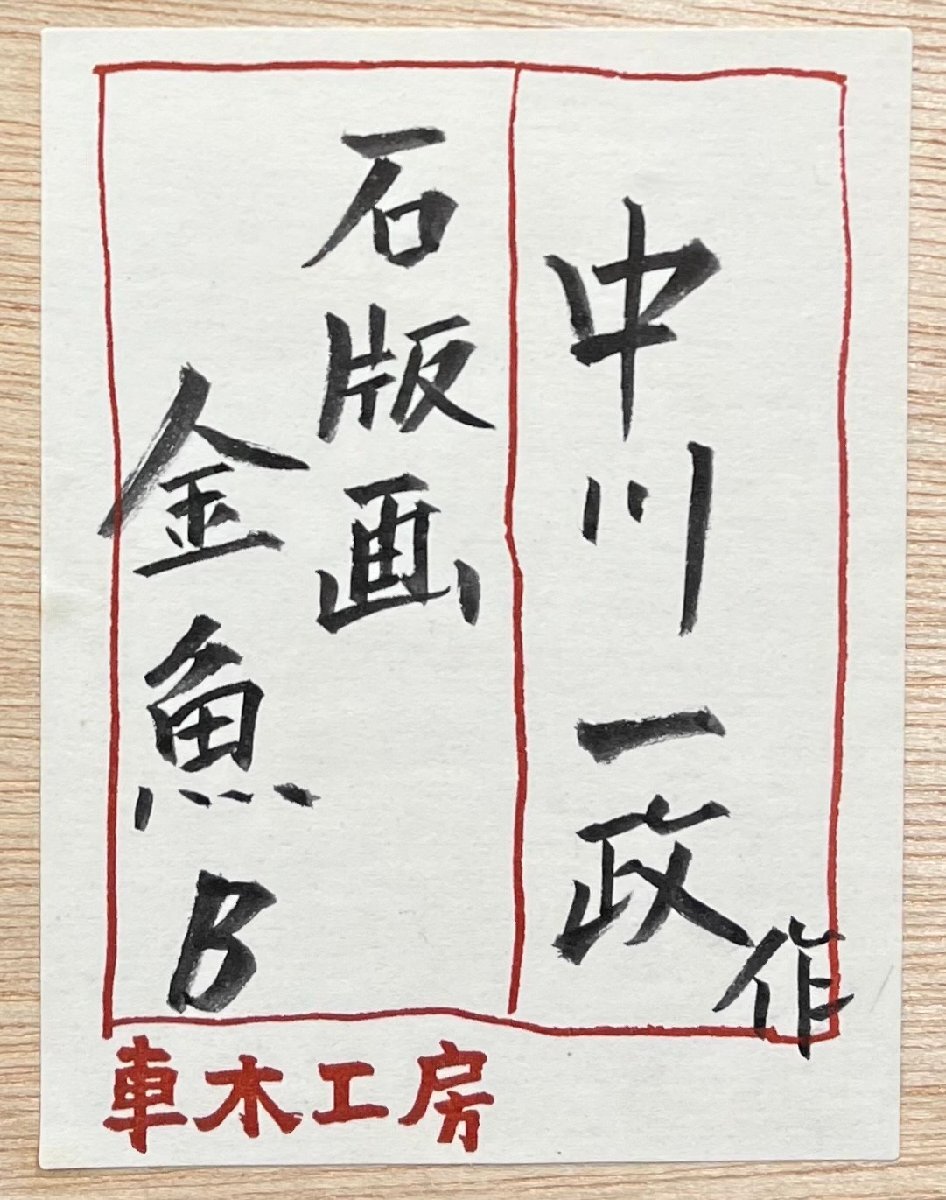 中川一政作
石版画
金魚B
車木工房